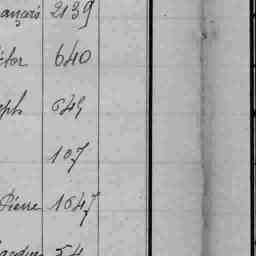 ançois 2139
ctor 640
eph 643
107
Pierre 1647
54